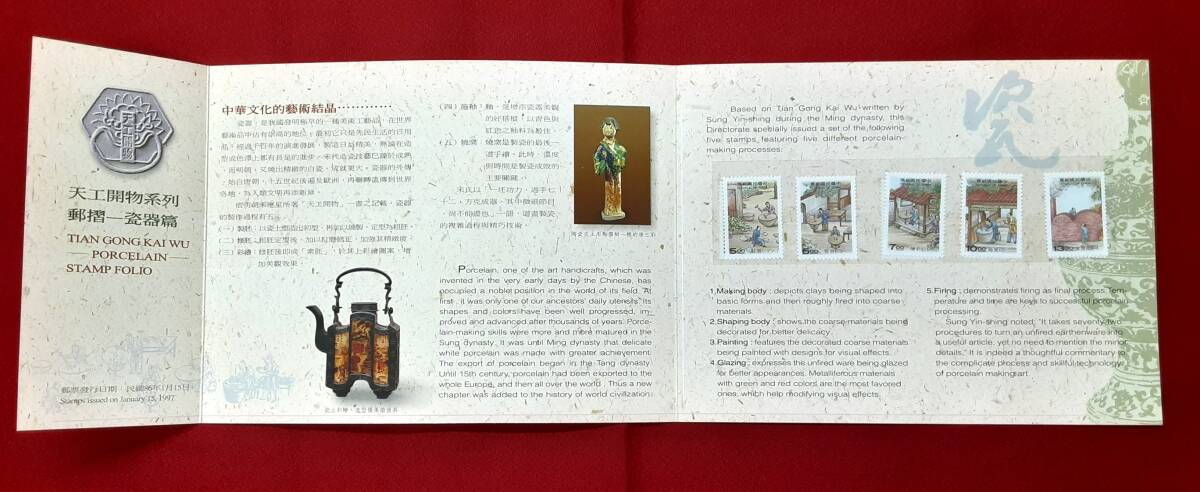 天工開物
天工開物系列
郵摺—瓷器篇
TIAN GONG KAI WU
PORCELAIN
STAMP FOLIO
郵票發行日期：民國86年1月15日
Stamps issued on January 15, 1997
中華文化的藝術結晶…………
瓷器，是我國發明極早的一種美術工藝品，在世界
藝術品中佔有崇高的地位。最初它只是先民生活的日用
品，經過千百年的演進發展，製造日益精美，無論在造
型或色澤上都有長足的進步。宋代造瓷技藝已臻於成熟
，而明朝，又燒出精緻的白瓷，成就更大。瓷器的外傳
，始自唐朝，十五世紀後遍及歐洲，再輾轉遠傳到世界
各地，為人類文明再添新章。
的製作過程有五：
(一) 製胚：
(二) 修胚：
(三) 彩繪：修胚後即成「素胚」，於其上彩繪圖案，增
加美觀效果。
(四) 施釉：釉，是增市瓷器美觀
(五) 燒窯：燒窯是製瓷的最後一
道手續，此時，溫度
與時間是製瓷成敗的
主要關鍵。
宋氏以「一坯功力，過手七
十二，方克成器，其中微細節目
，尚不能盡也」一語，道盡製瓷
的複雜過程與精巧技術。
Porcelain, one of the art handicrafts, which was
invented in the very early days by the Chinese, has
occupied a noble position in the world of its field. At
first , it was only one of our ancestors' daily utensils. Its
shapes and colors have been well progressed, im-
proved and advanced after thousands of years. Porce-
lain-making skills were more and more matured in the
Sung dynasty. It was until Ming dynasty that delicate
white porcelain was made with greater achievement.
The export of porcelain began in the Tang dynasty.
Until 15th century, porcelain had been exported to the
whole Europe, and then all over the world . Thus a new
chapter was added to the history of world civilization.
瓷
Based on Tian Gong Kai Wu written by
Sung Yin-shing during the Ming dynasty, this
Directorate spetially issued a set of the following
five stamps featuring five different porcelain-
making processes:
5.00
6.00
7.00
10.00
13.00
1.Making body : depicts clays being shaped into
basic forms and then roughly fired into coarse
materials.
2.Shaping body : shows the coarse materials being
decorated for better delicacy.
3.Painting : features the decorated coarse materials
being painted with designs for visual effects.
4.Glazing : expresses the unfired ware being glazed
for better appearances. Metalliferous materials
with green and red colors are the most favored
ones, which help modifying visual effects.
5.Firing : demonstrates firing as final process. Tem-
perature and time are keys to successful porcelain
processing.
Sung Yin-shing noted, "It takes seventy-two
procedures to turn an unfired earthenware into
a useful article, yet no need to mention the minor
details." It is indeed a thoughtful commentary to
the complicate process and skillful technology
of porcelain making art.